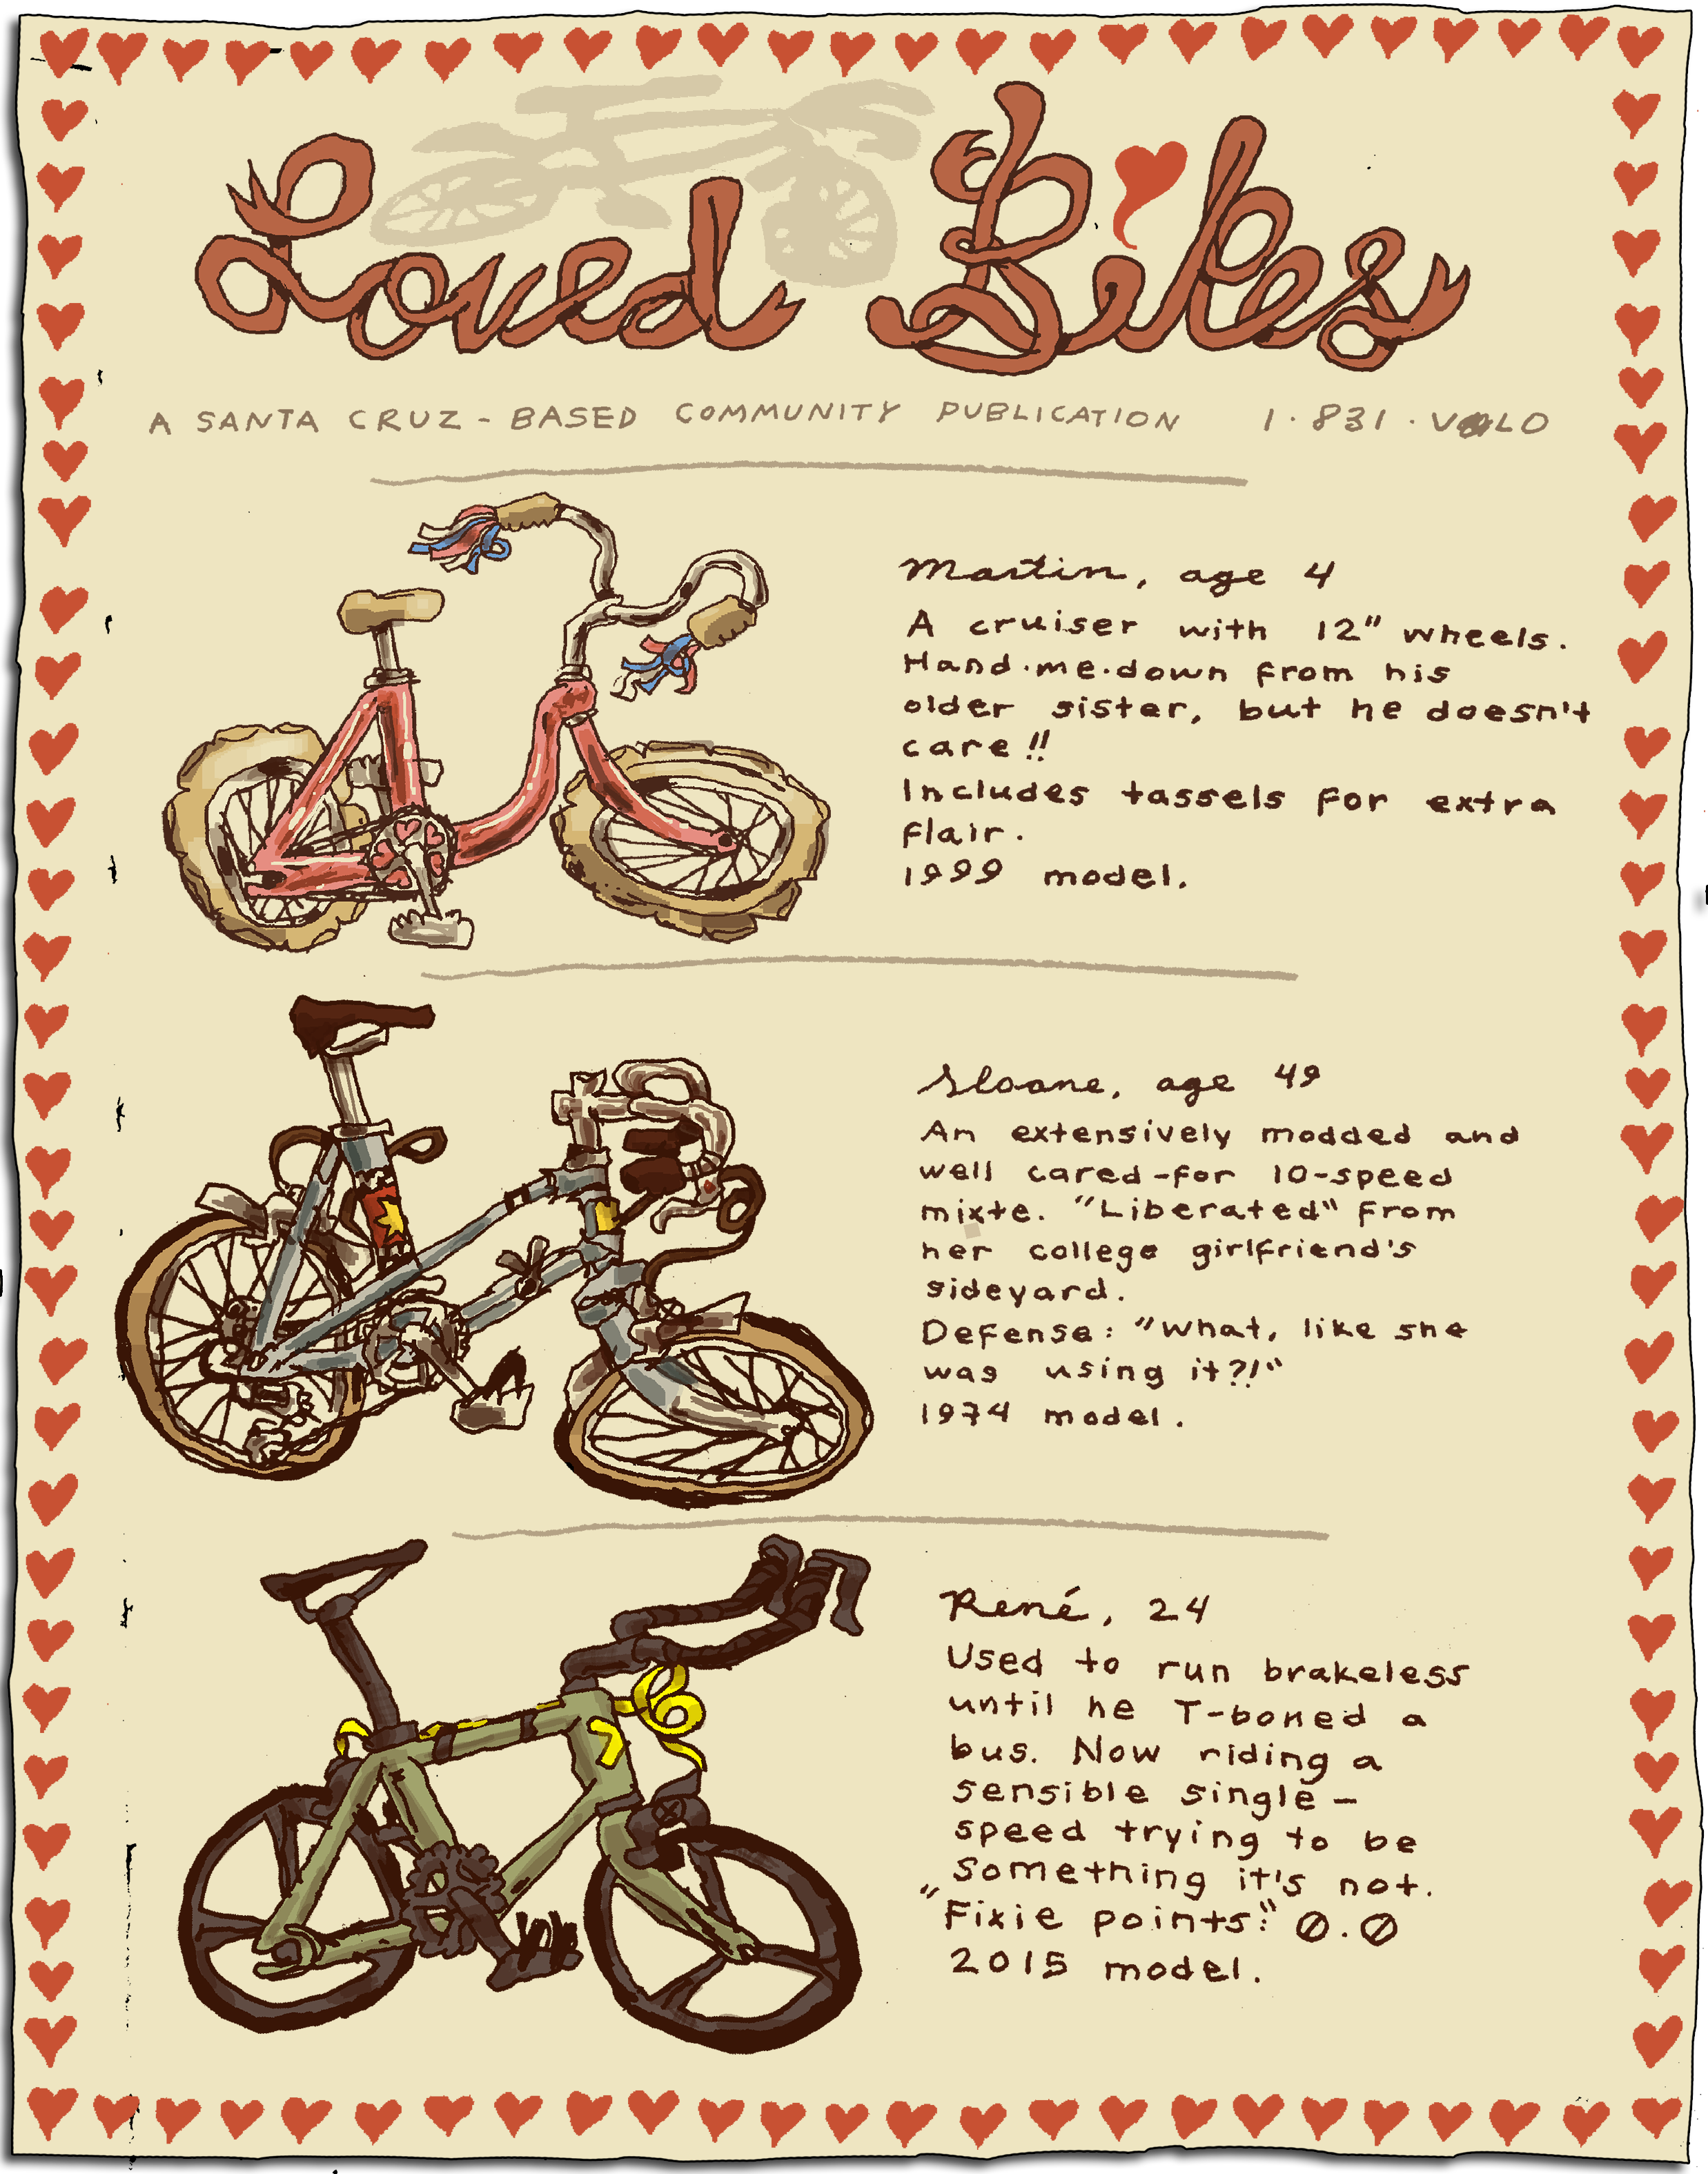 Loved Bikes
A SANTA CRUZ - BASED COMMUNITY PUBLICATION 1·831·VOLO
Martin, age 4
A cruiser with 12" wheels.
Hand·me·down from his
older sister, but he doesn't
care!!
Includes tassels for extra
flair.
1999 model.
Sloane, age 49
An extensively modded and
well cared-for 10-speed
mixte. "Liberated" from
her college girlfriend's
sideyard.
Defense: "What, like she
was using it?!"
1974 model.
René, 24
Used to run brakeless
until he T-boned a
bus. Now riding a
sensible single-
speed trying to be
something it's not.
"Fixie points:" 0.0
2015 model.